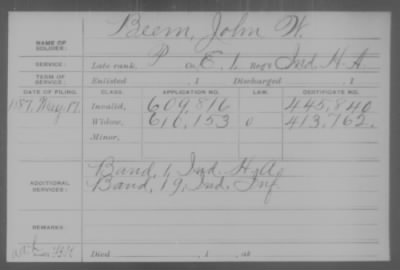 NAME OF SOLDIER: Beem, John W.
SERVICE: Late rank, P Co. E, 1, Reg't Ind. H. A.
TERM OF SERVICE: Enlisted , 1 Discharged , 1
DATE OF FILING. CLASS. APPLICATION NO. LAW. CERTIFICATE NO.
1887, May 17. Invalid, 609,816 445,840
Widow, 616,153 0 413,762.
Minor,
ADDITIONAL SERVICES: Band, 1, Ind. H. A.
Band, 19, Ind. Inf
REMARKS:
Died , 1 , at